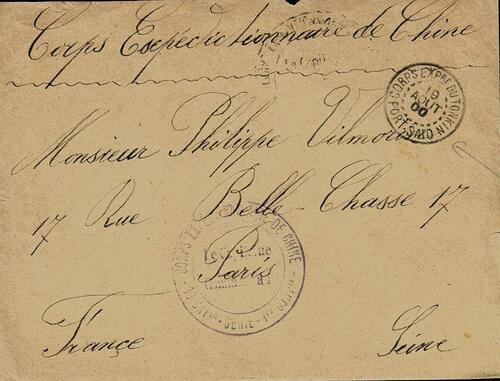 Corps Espécdictionnaire de Chine
CORPS EXP.RE DU TONKIN
19
AOUT
00
PORT-SAID
Monsieur Philippe Vilmorin
17 Rue Belle-Chasse 17
Paris
CORPS EX DE CHINE
GENIE
France Seine